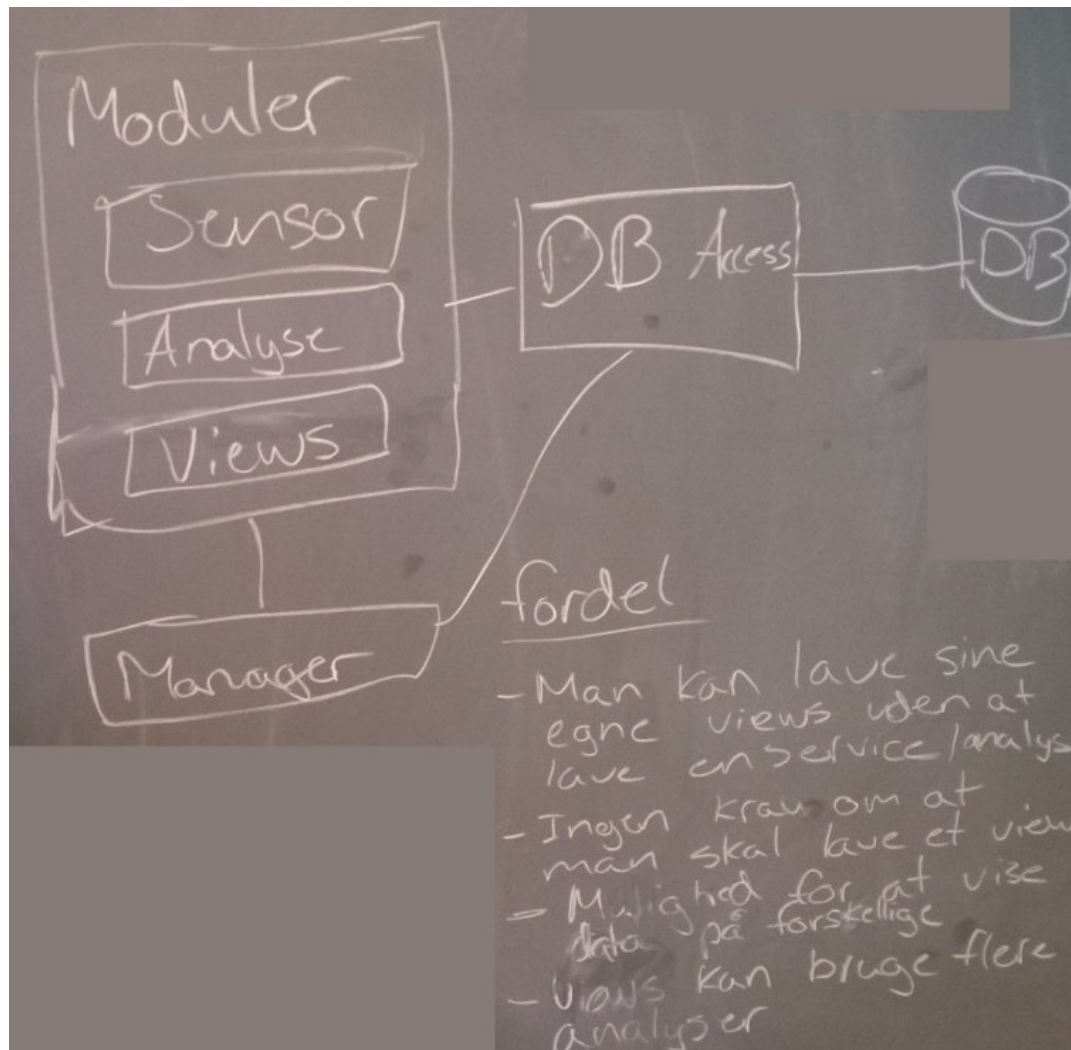 Moduler
Sensor
Analyse
Views
Manager
DB Access
DB
fordel
- Man kan lave sine
egne views uden at
lave en service/analys
- Ingen krav om at
man skal lave et view
- Mulighed for at vise
data på forskellige
- Views kan bruge flere
analyser